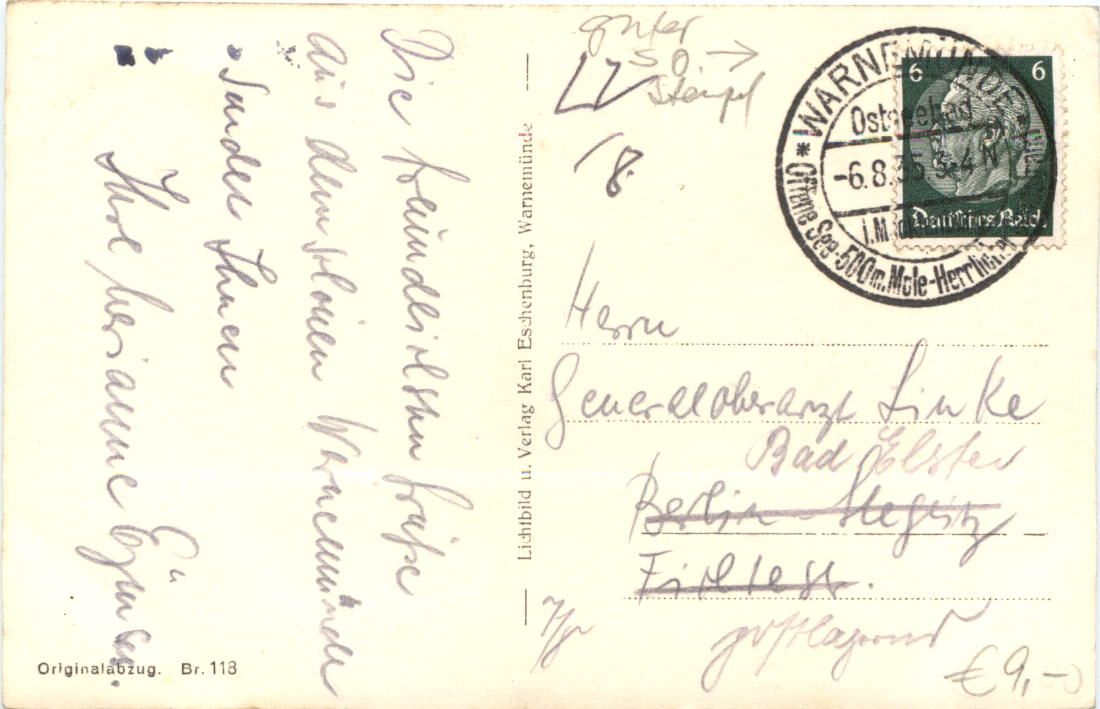 Die freundlichsten Grüße
aus dem schönen Warnemünde
sendet Ihnen
Ihre
Originalabzug. Br. 118
Lichtbild u. Verlag Karl Eschenburg, Warnemünde
guter
SO. →
Stempel
18
* WARNEMÜNDE
Ostseebad
-6.8.35 3-4 N
i.M
Offene See-500m. Mole-Herrlicher
6 6
Deutsches Reich
Herrn
Generaloberarzt Linke
Bad Elster
Berlin-Steglitz
postlagernd
€ 9,-